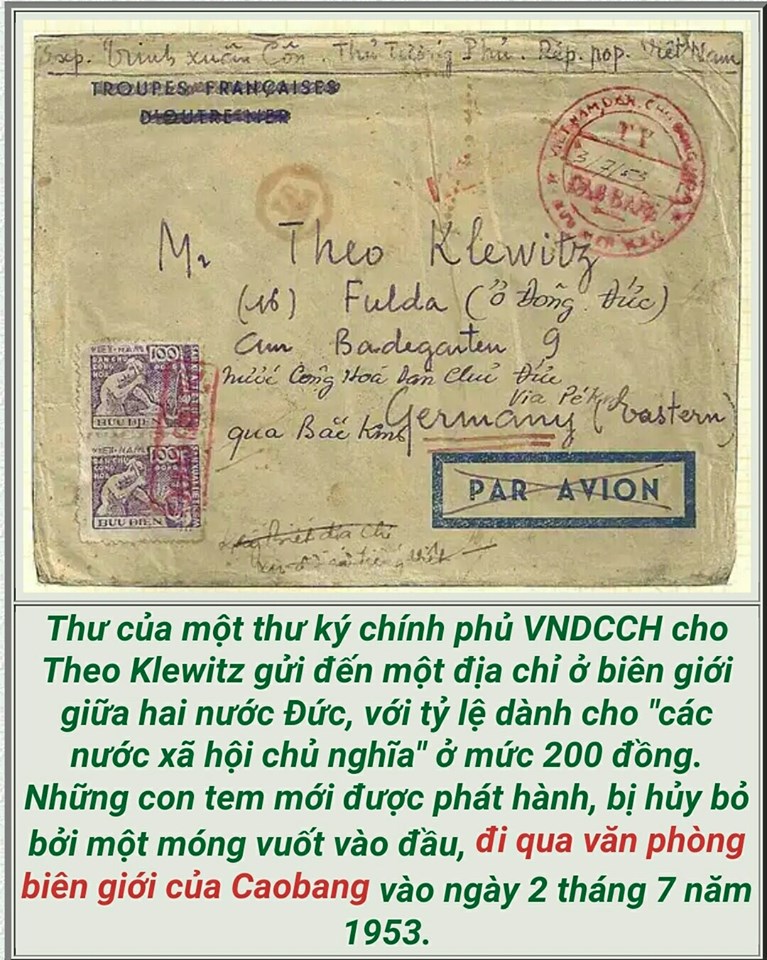 Exp. Trịnh Xuân Cốn. Thủ Tướng Phủ. Rép. pop. Việt Nam
TROUPES FRANÇAISES
D'OUTRE-MER
VIET NAM DAN CHU CONG HOA
TT
3/7/53
CAO BANG
Mr Theo Klewitz
(16) Fulda (ở Đông Đức)
am Badegarten 9
nước Cộng Hoà Dân Chủ Đức
Via Pékin
Germany (Eastern)
qua Bắc Kinh
PAR AVION
VIET-NAM 100
DAN CHU
CONG
HOA
BUU ĐIEN
VIET-NAM 100
DAN CHU
CONG
HOA
BUU ĐIEN
Thư của một thư ký chính phủ VNDCCH cho
Theo Klewitz gửi đến một địa chỉ ở biên giới
giữa hai nước Đức, với tỷ lệ dành cho "các
nước xã hội chủ nghĩa" ở mức 200 đồng.
Những con tem mới được phát hành, bị hủy bỏ
bởi một móng vuốt vào đầu, đi qua văn phòng
biên giới của Caobang vào ngày 2 tháng 7 năm
1953.